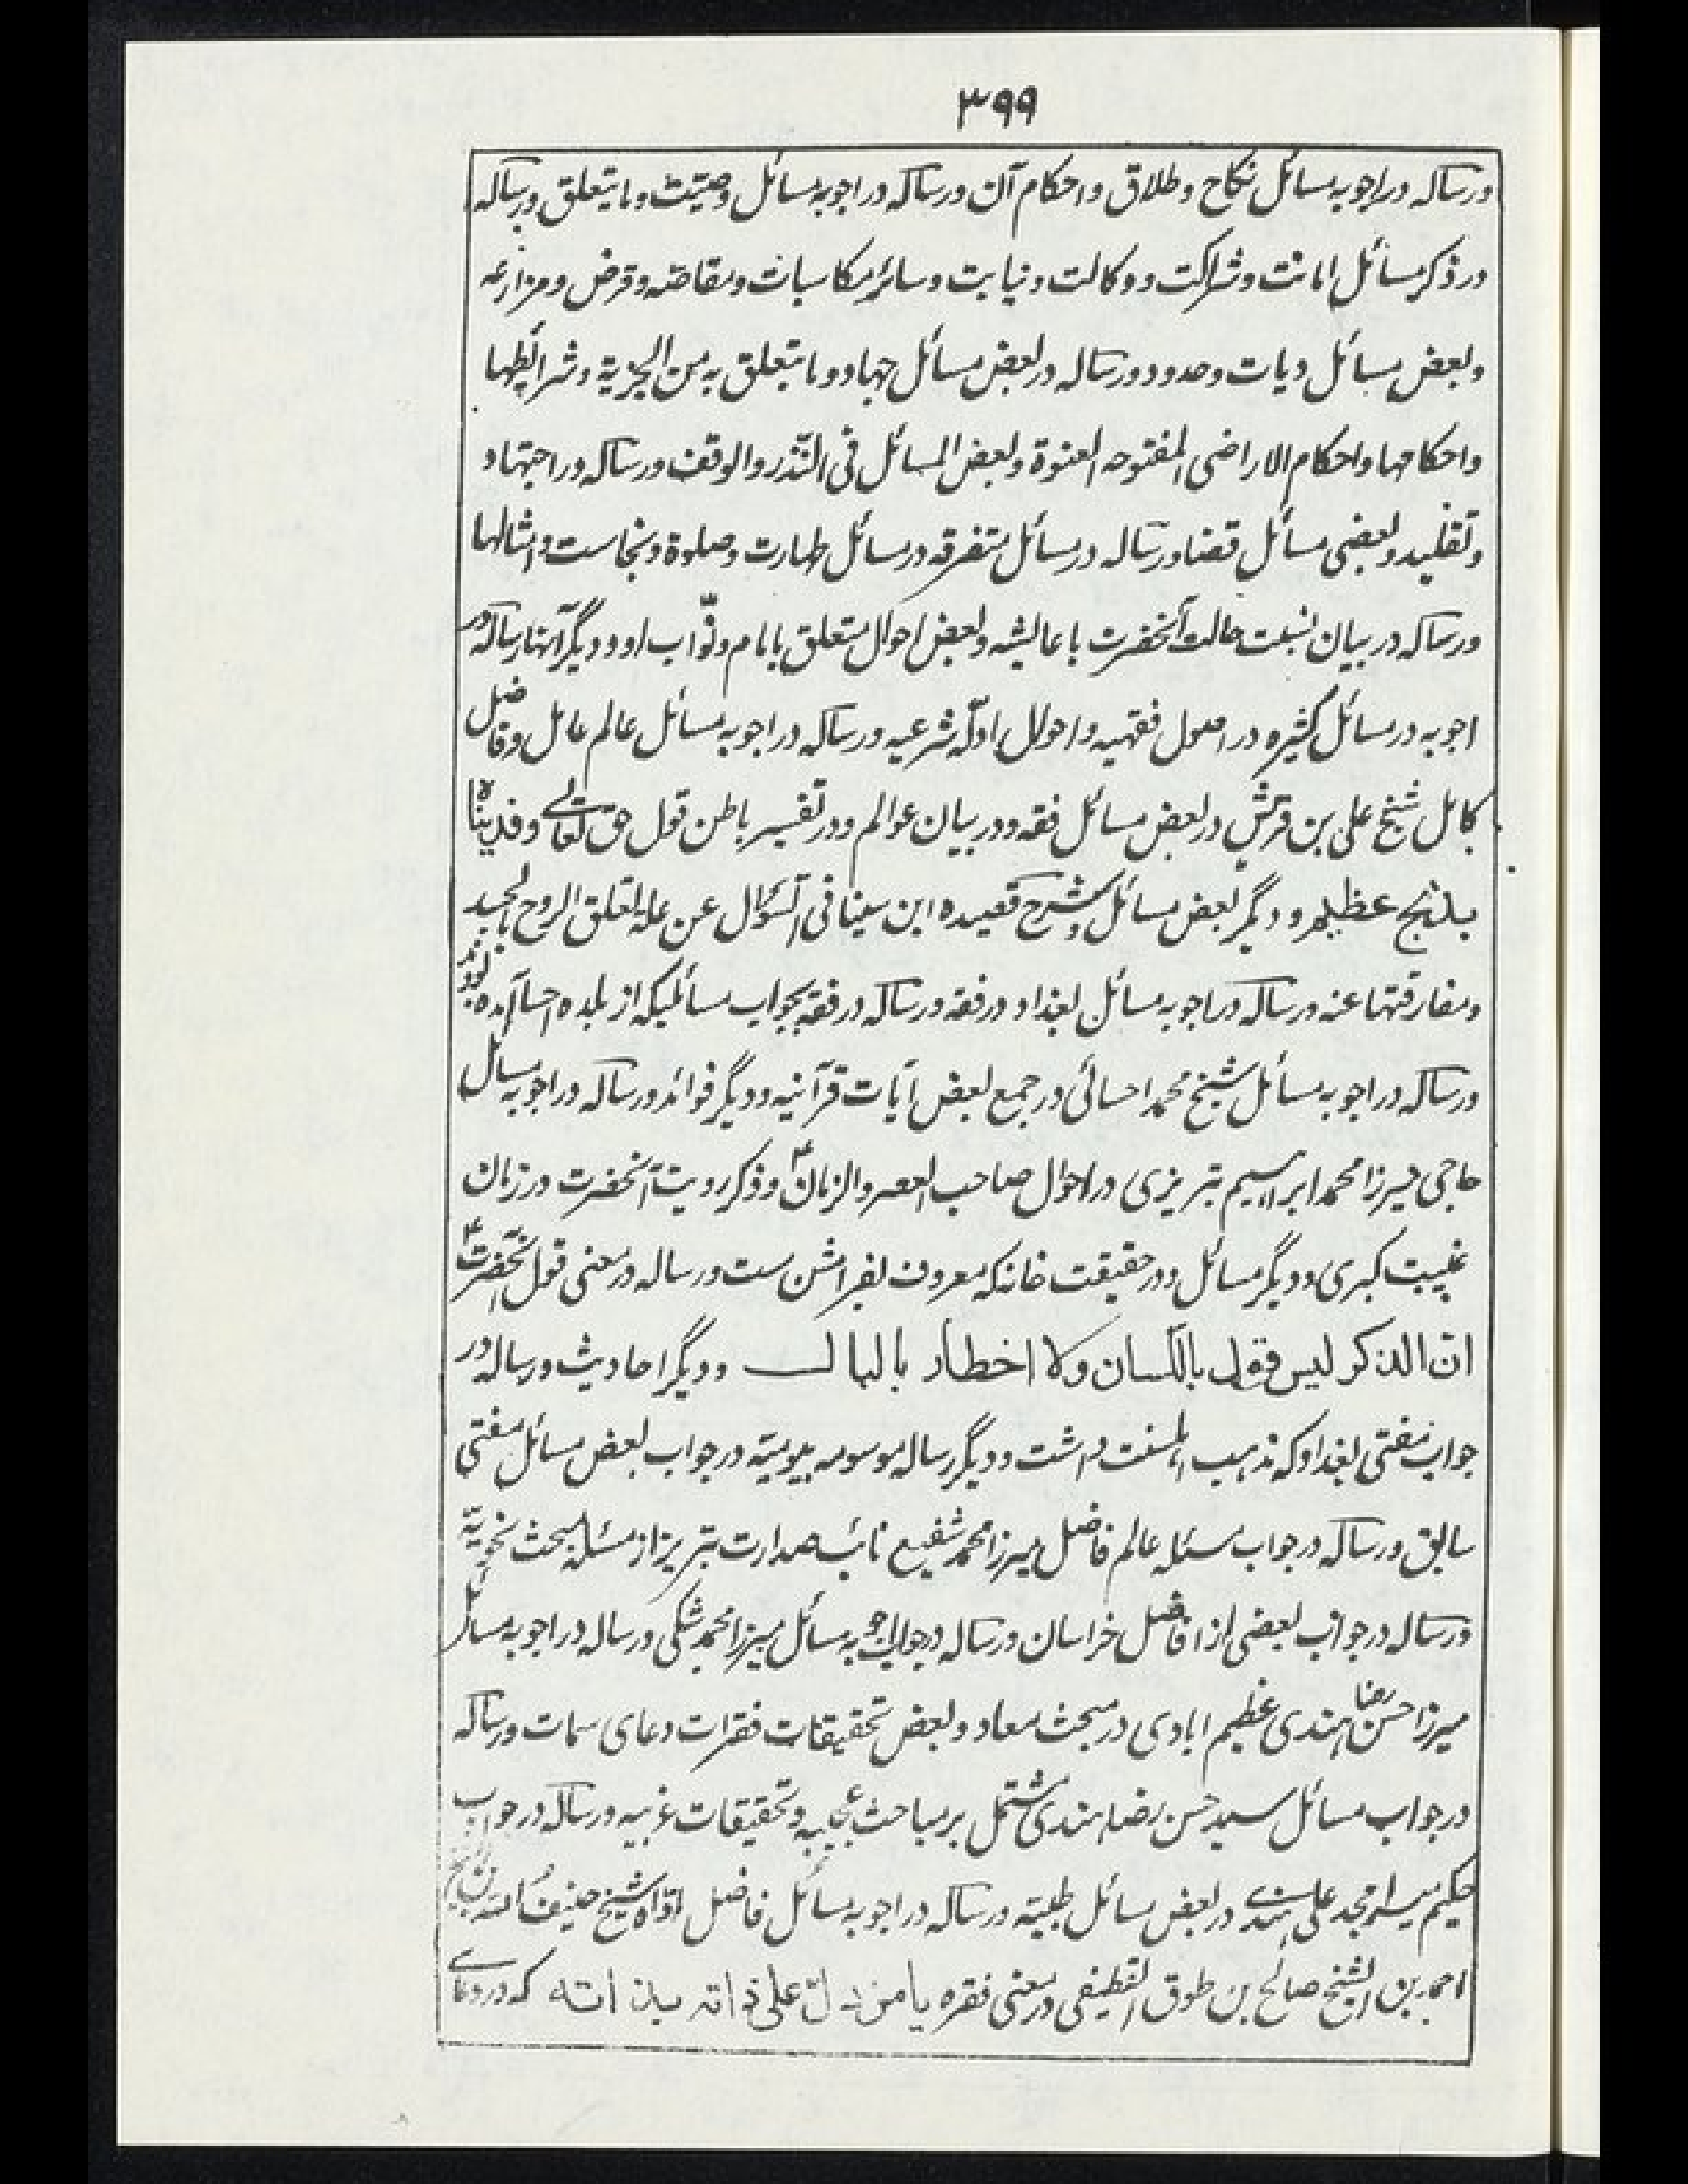 ۳۹۹
ورساله در اجوبه مسائل نکاح و طلاق و احکام آن ورساله در اجوبه مسائل وصیّت و ما یتعلق ورساله
در ذکر مسائل امانت و شراکت و وکالت و نیابت و سائر مکاسبات و مقاصه و قرض و مزارعه
و بعض مسائل دیات و حدود ورساله در بعض مسائل جهاد و ما یتعلق به من الجزیة و شرائطها
و احکامها و احکام الاراضی المفتوحه العنوة و بعض المسائل فی النّذر والوقف ورساله در اجتهاد
و تقلید و بعضی مسائل قضا ورساله در مسائل متفرقه در مسائل طهارت و صلوة و نجاست و امثالها
ورساله در بیان نسبت حالت آنحضرت با عائشه و بعض احوال متعلق بامام و نوّاب او و دیگر آنها ورساله در
اجوبه در مسائل کثیره در اصول فقهیه و احوال ادلّه شرعیه ورساله در اجوبه مسائل عالم عامل و فاضل
کامل شیخ علی بن قرشی در بعض مسائل فقه و در بیان عوالم و در تفسیر باطن قول حق تعالی وفدیناه
بذبح عظیم و دیگر بعض مسائل و شرح قصیده ابن سینا فی السّؤال عن علة تعلق الروح بالجسد
و مفارقتها عنه ورساله در اجوبه مسائل بغداد در فقه ورساله در فقه بجواب مسائلیکه از بلده احسا آمده بودند
ورساله در اجوبه مسائل شیخ محمد احسائی در جمع بعض آیات قرآنیه و دیگر فوائد ورساله در اجوبه مسائل
حاجی میرزا محمد ابراهیم تبریزی در احوال صاحب العصر والزمان ع و ذکر رویت آنحضرت در زمان
غیبت کبری و دیگر مسائل و در حقیقت خانه که معروف بفرامشن ست ورساله در معنی قول آنحضرت ع
ان الذکر لیس قول باللسان ولا اخطار بالبال و دیگر احادیث ورساله در
جواب مفتی بغداد که مذهب اهلسنت داشت و دیگر رساله موسومه بیومیّة در جواب بعض مسائل مفتی
سابق ورساله در جواب مسئله عالم فاضل میرزا محمد شفیع نائب صدارت تبریز از مسئله مبحث نحویّه
ورساله در جواب بعضی از افاضل خراسان ورساله در جواب اجوبه مسائل میرزا محمد مشکی ورساله در اجوبه مسائل
میرزا حسن رضا هندی عظیم ابادی در مبحث معاد و بعض تحقیقات فقرات دعای سمات ورساله
در جواب مسائل سید حسن رضا هندی مشتمل بر مباحث عجیبه و تحقیقات غریبه ورساله در جواب
حکیم میر امجد علی هندی در بعض مسائل طبیّه ورساله در اجوبه مسائل فاضل اوّاه شیخ ضیف الله بن الشیخ
احمد بن الشیخ صالح بن طوق القطیفی در معنی فقره یا من دلّ علی ذاته بذاته که در دعای